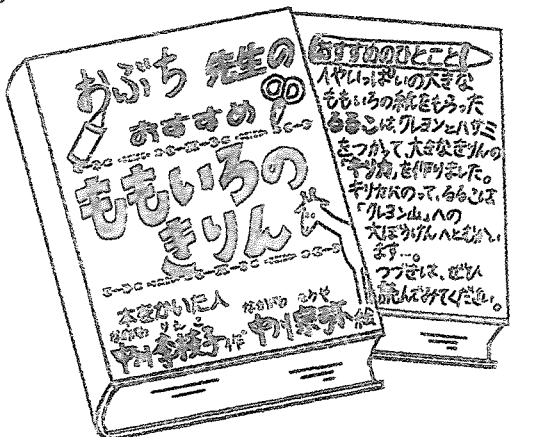 おぶち 先生の
おすすめ
ももいろの
きりん
本をかいた人
なかがわ りえこ
中川李枝子 作
なかがわ そうや
中川宗弥 絵
おすすめのひとこと!
人やいっぱいの大きな
ももいろの紙をもらった
るるこは、クレヨンとハサミ
をつかって、大きなきりんの
「キリカ」を作りました。
キリカにのって、るるこは
「クレヨン山」への
大ぼうけんへとむかい
ます…。
つづきは、ぜひ
読んでみてください。